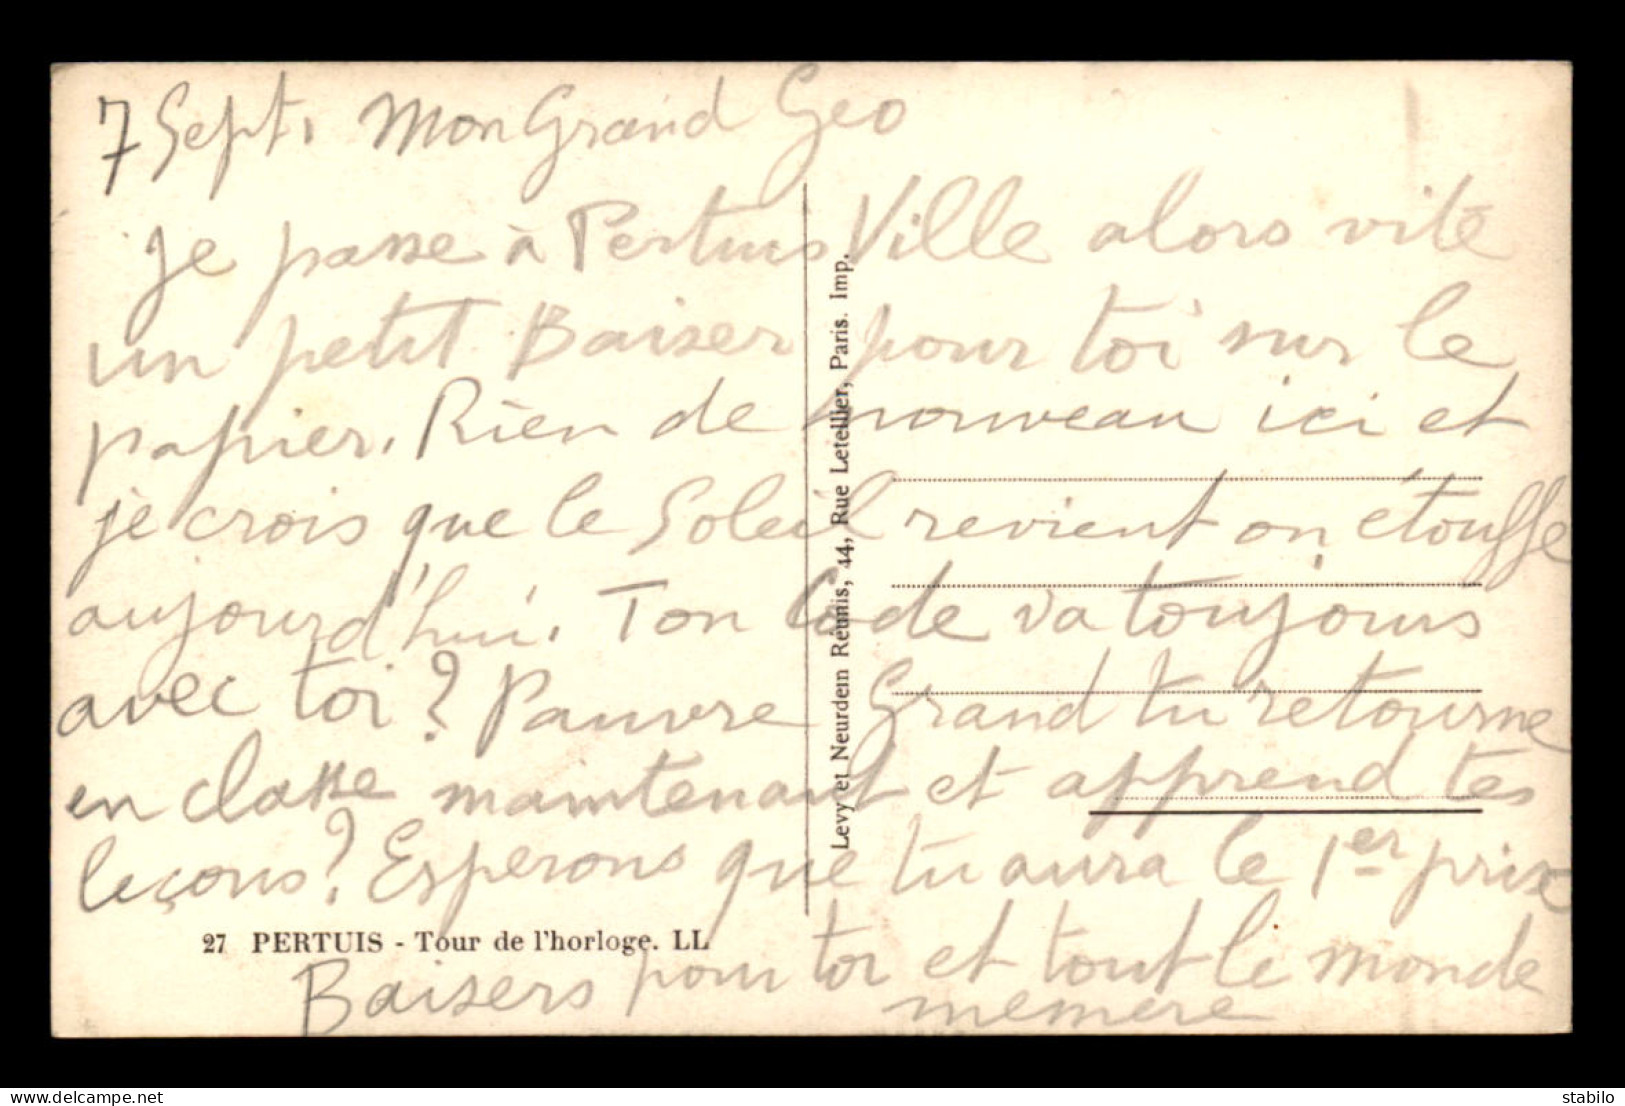 7 Sept. Mon Grand Geo
je passe à Pertuis Ville alors vite
un petit Baiser pour toi sur le
papier. Rien de nouveau ici et
je crois que le Soleil revient on étouffe
aujourd'hui. Ton Code va toujours
avec toi ? Pauvre Grand tu retourne
en classe maintenant et apprend tes
leçons ? Esperons que tu aura le 1er prix
27 PERTUIS - Tour de l'horloge. LL
Baisers pour toi et tout le monde
memere
Levy et Neurdein Réunis, 44, Rue Letellier, Paris. Imp.
delcampe.net
stabilo